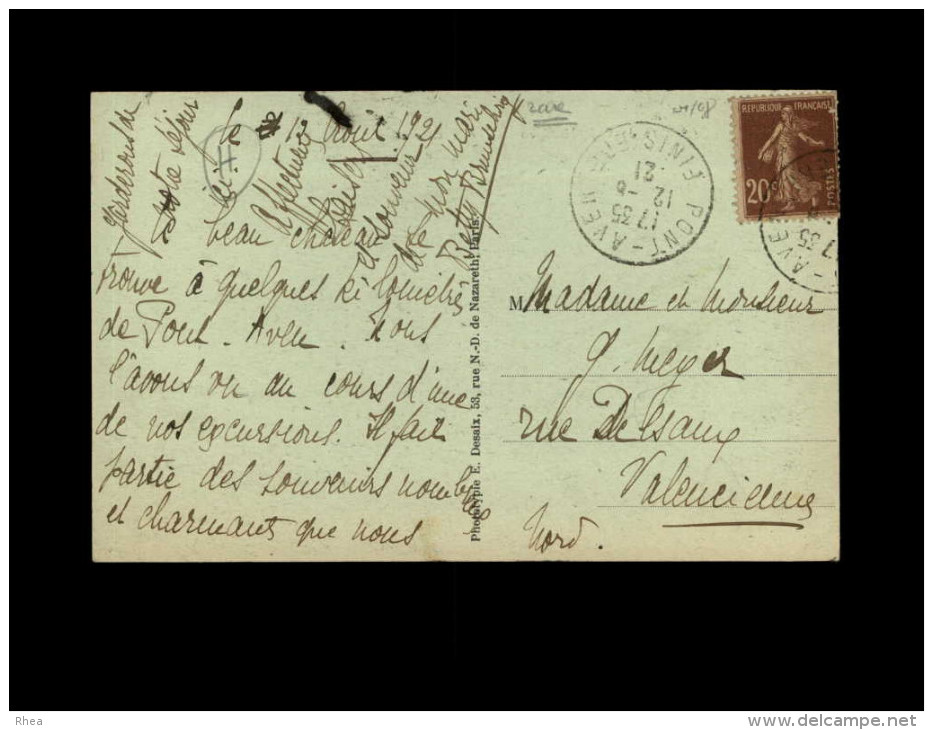 le 12 Août 1921
Le beau château se
trouve à quelques kilomètres
de Pont-Aven. Nous
l'avons vu au cours d'une
de nos excursions. Il fait
partie des souvenirs nombreux
et charmants que nous
garderons de
notre séjour
ici.
Affectueux
baisers
et souvenirs
de mon mari
Betty
rare
Phototypie E. Desaix, 53, rue N.-D. de Nazareth, Paris.
PONT-AVEN FINISTERE
17 35
12 -8
21
REPUBLIQUE FRANÇAISE
20c
POSTES
M Madame et Monsieur
G. Meyer
rue Desaux
Valenciennes
Nord.
Rhea
http://www.delcampe.net